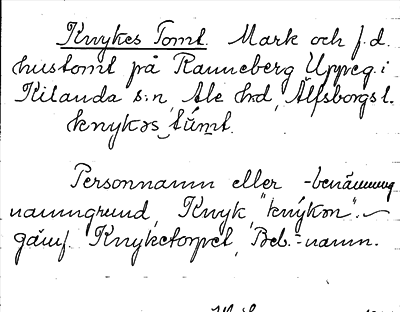 Knykes Tomt. Mark och f.d.
hustomt på Ranneberg Uppeg. i
Kilanda s:n, Ale hd, Älfsborgs l.
knykəs tùmt.
Personnamn eller -benämning
namngrund, Knyk, "knýkən".
gämf. Knyketorpet, Beb.-namn.